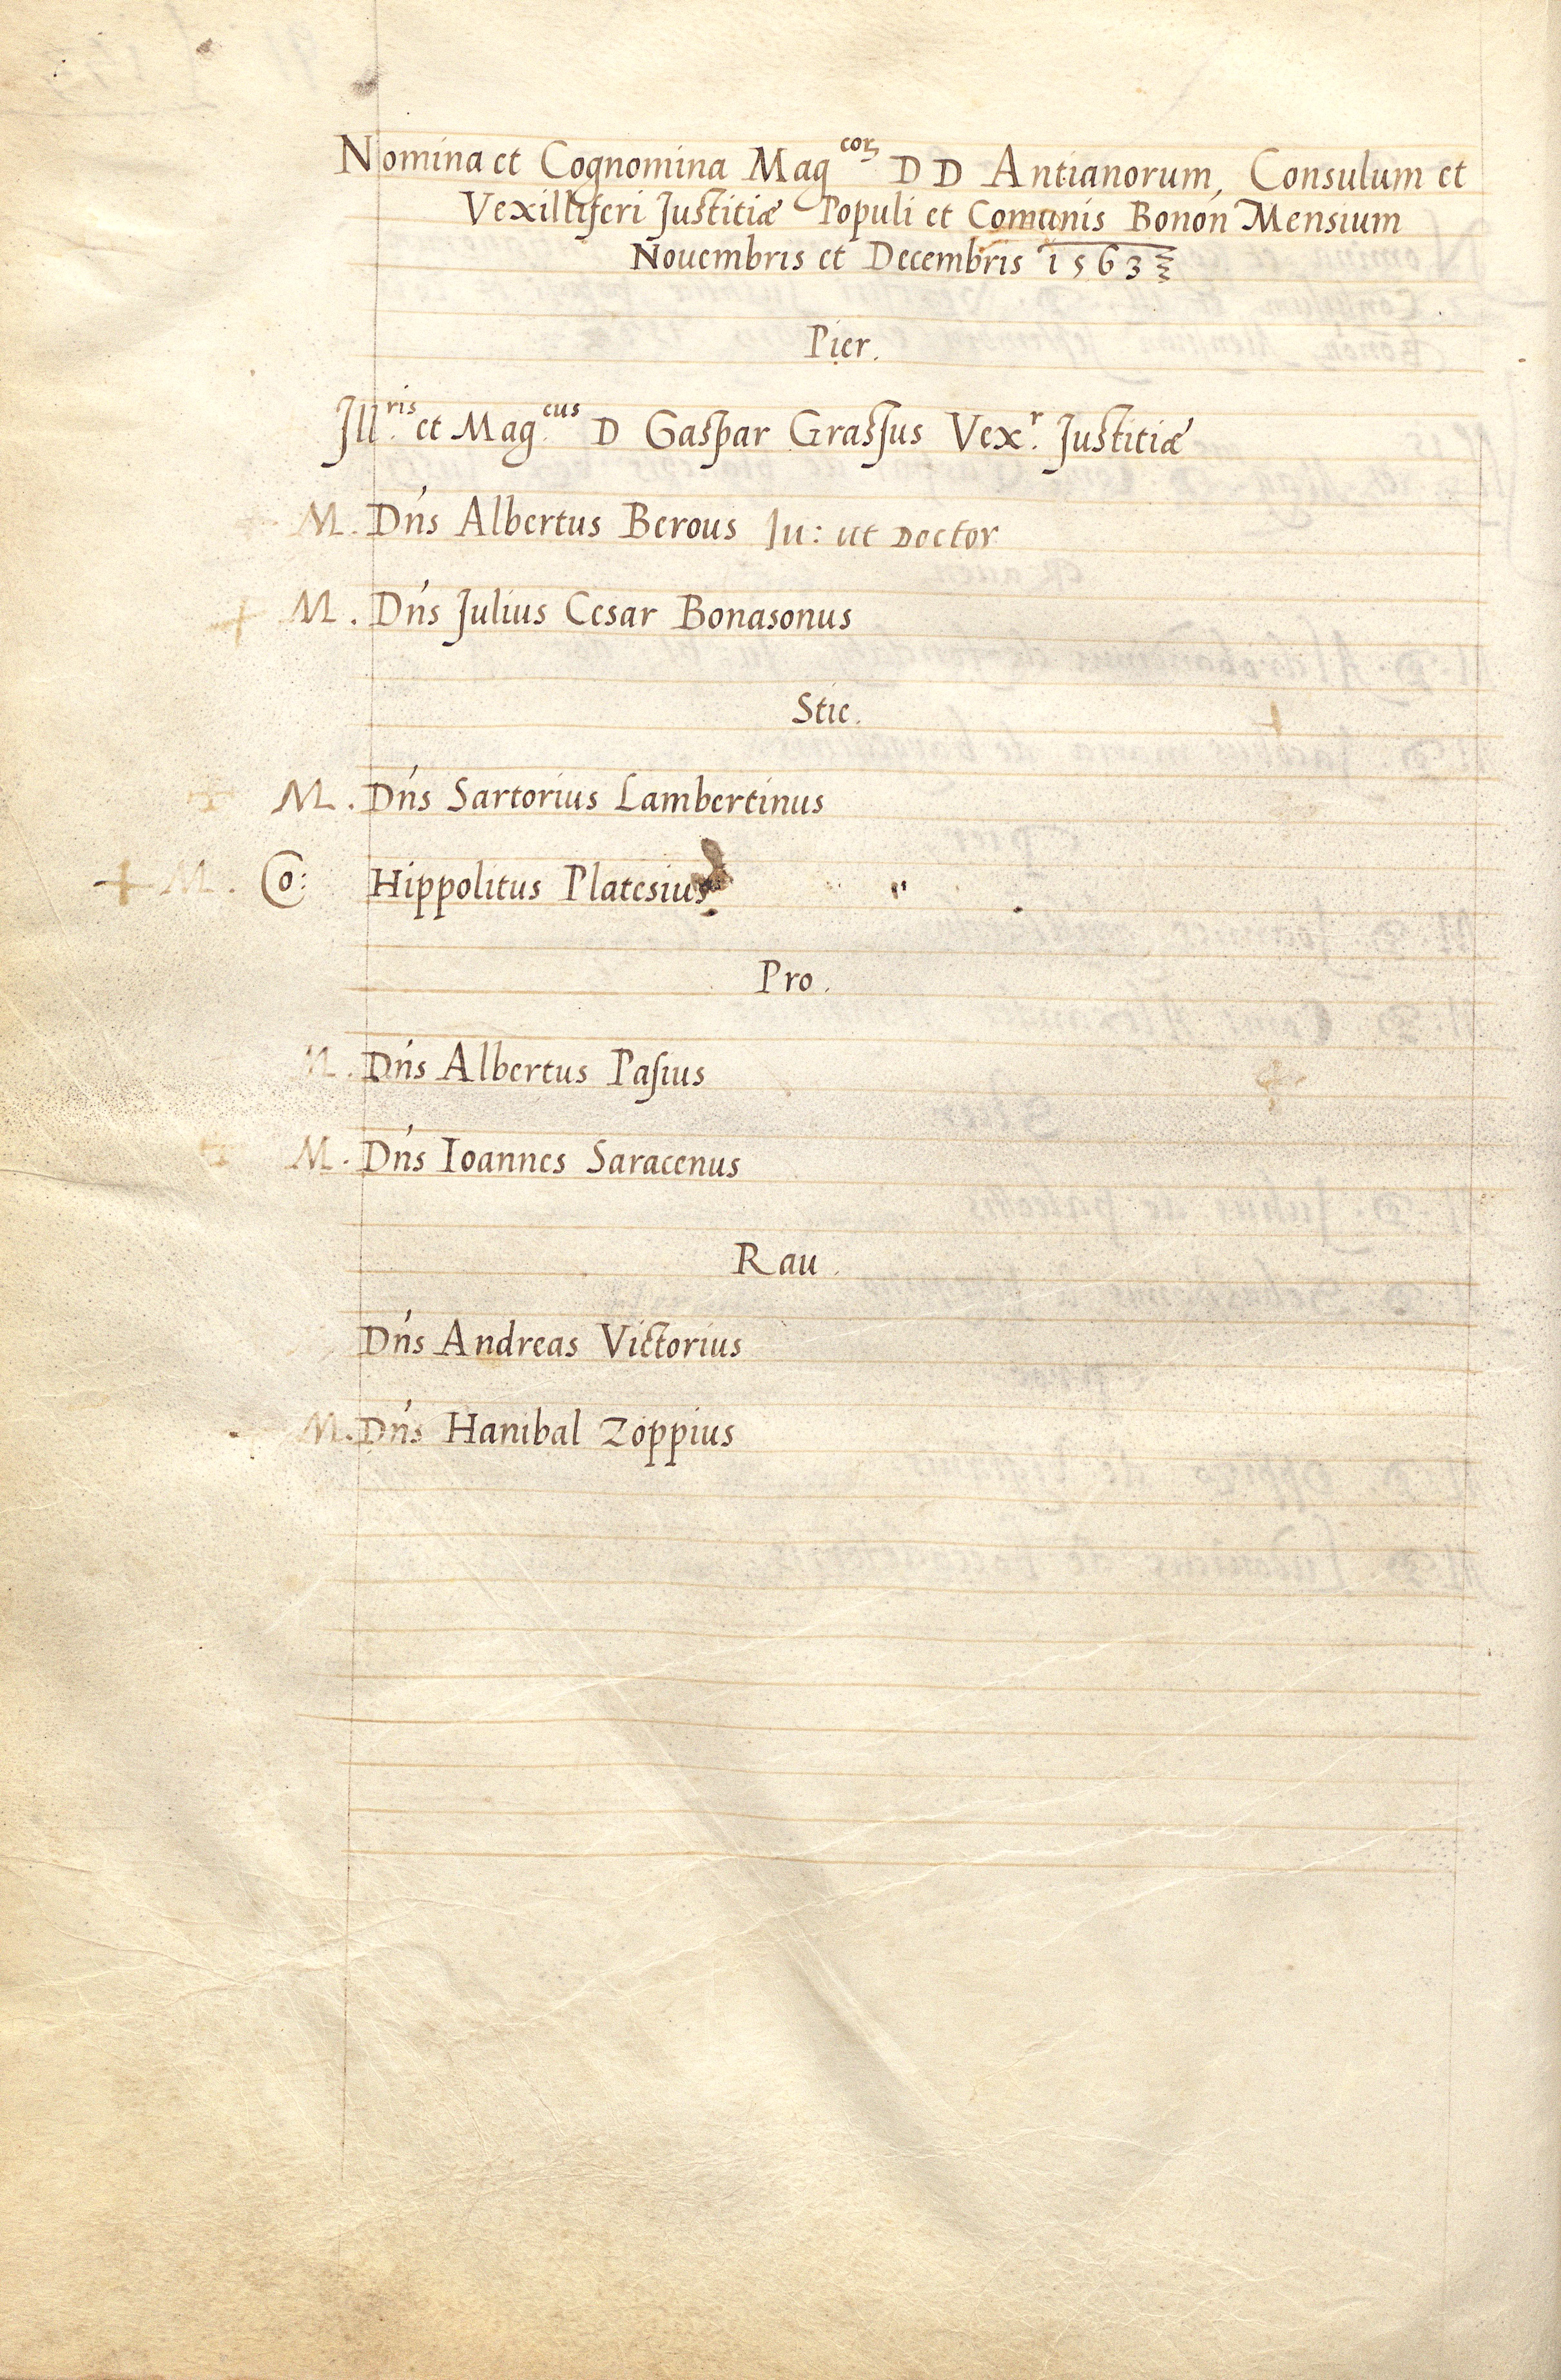 Nomina et Cognomina Mag^(corꝝ) D D Antianorum, Consulum et
Vexilliferi Justitiæ Populi et Comunis Bonoñ Mensium
Nouembris et Decembris 1563
Pier.
Ill.^(ris) et Mag.^(cus) D Gaspar Grassus Vex.^(r) Justitiæ
M. Dn̄s Albertus Berous Iu: ut Doctor
+ M. Dn̄s Julius Cesar Bonasonus
Stie.
+ M. Dn̄s Sartorius Lambertinus
+ M. Co: Hippolitus Platesius
Pro.
M. Dn̄s Albertus Pasius
+ M. Dn̄s Ioannes Saracenus
Rau.
Dn̄s Andreas Victorius
M. Dn̄s Hanibal Zoppius